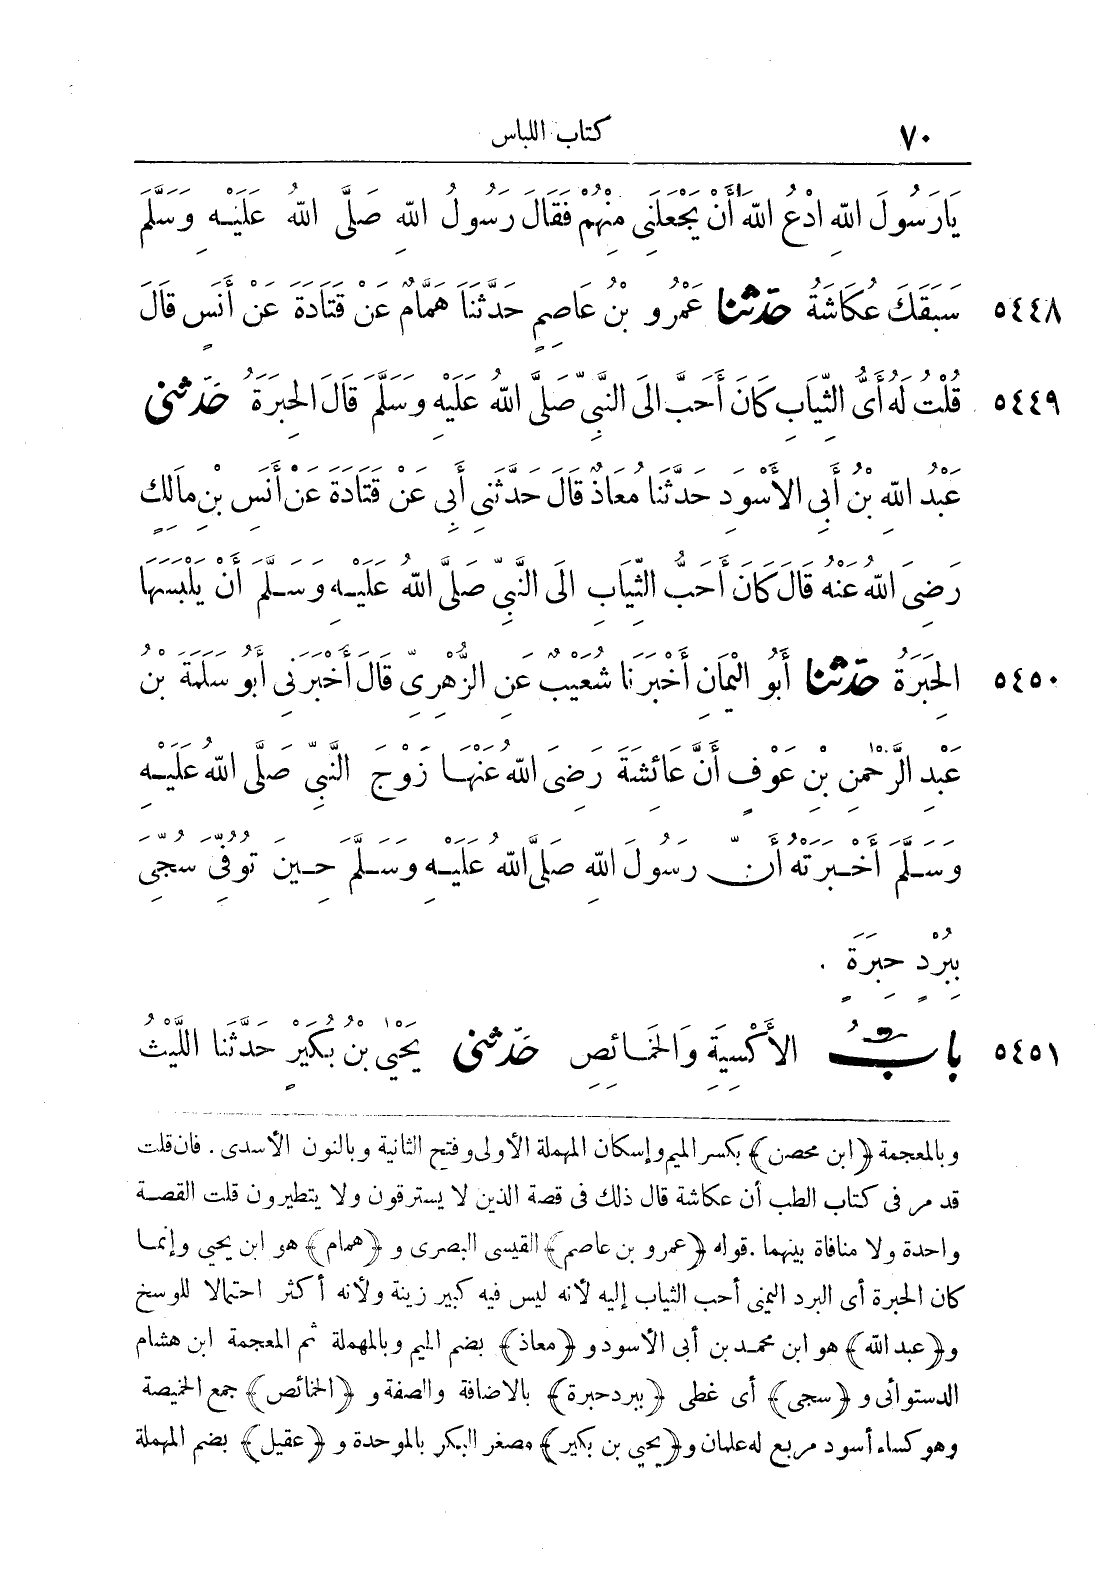 ٧٠ كتاب اللباس
يَارَسُولَ اللهِ ادْعُ اللهَ أَنْ يَجْعَلَنِى مِنْهُمْ فَقَالَ رَسُولُ اللهِ صَلَّى اللهُ عَلَيْهِ وَسَلَّمَ
٥٤٤٨ سَبَقَكَ عُكَاشَةُ حَدَّثَنَا عَمْرُو بْنُ عَاصِمٍ حَدَّثَنَا هَمَّامٌ عَنْ قَتَادَةَ عَنْ أَنَسٍ قَالَ
٥٤٤٩ قُلْتُ لَهُ أَىُّ الثِّيَابِ كَانَ أَحَبَّ الَى النَّبِىِّ صَلَّى اللهُ عَلَيْهِ وَسَلَّمَ قَالَ الْحِبَرَةُ حَدَّثَنِى
عَبْدُ اللهِ بْنُ أَبِى الأَسْوَدِ حَدَّثَنَا مُعَاذٌ قَالَ حَدَّثَنِى أَبِى عَنْ قَتَادَةَ عَنْ أَنَسِ بْنِ مَالِكٍ
رَضِىَ اللهُ عَنْهُ قَالَ كَانَ أَحَبُّ الثِّيَابِ الَى النَّبِىِّ صَلَّى اللهُ عَلَيْهِ وَسَلَّمَ أَنْ يَلْبَسَهَا
٥٤٥٠ الْحِبَرَةُ حَدَّثَنَا أَبُو الْيَمَانِ أَخْبَرَنَا شُعَيْبٌ عَنِ الزُّهْرِىِّ قَالَ أَخْبَرَنِى أَبُو سَلَمَةَ بْنُ
عَبْدِ الرَّحْمٰنِ بْنِ عَوْفٍ أَنَّ عَائِشَةَ رَضِىَ اللهُ عَنْهَا زَوْجَ النَّبِىِّ صَلَّى اللهُ عَلَيْهِ
وَسَلَّمَ أَخْبَرَتْهُ أَنَّ رَسُولَ اللهِ صَلَّى اللهُ عَلَيْهِ وَسَلَّمَ حِينَ تُوُفِّىَ سُجِّىَ
بِبُرْدٍ حِبَرَةٍ .
٥٤٥١ بَابُ الأَكْسِيَةِ وَالْخَمَائِصِ حَدَّثَنِى يَحْيٰى بْنُ بُكَيْرٍ حَدَّثَنَا اللَّيْثُ
وبالمعجمة ﴿ابن محصن﴾ بكسر الميم وإسكان المهملة الأولى وفتح الثانية وبالنون الأسدى . فان قلت
قد مر فى كتاب الطب أن عكاشة قال ذلك فى قصة الذين لا يسترقون ولا يتطيرون قلت القصة
واحدة ولا منافاة بينهما . قوله ﴿عمرو بن عاصم﴾ القيسى البصرى و ﴿همام﴾ هو ابن يحيى وإنما
كان الحبرة أى البرد اليمنى أحب الثياب إليه لأنه ليس فيه كبير زينة ولأنه أكثر احتمالا للوسخ
و﴿عبد الله﴾ هو ابن محمد بن أبى الأسود و ﴿معاذ﴾ بضم الميم وبالمهملة ثم المعجمة ابن هشام
الدستوائى و ﴿سجى﴾ أى غطى ﴿ببرد حبرة﴾ بالاضافة والصفة و ﴿الخمائص﴾ جمع الخميصة
وهو كساء أسود مربع له علمان و﴿يحيى بن بكير﴾ مصغر البكر بالموحدة و ﴿عقيل﴾ بضم المهملة